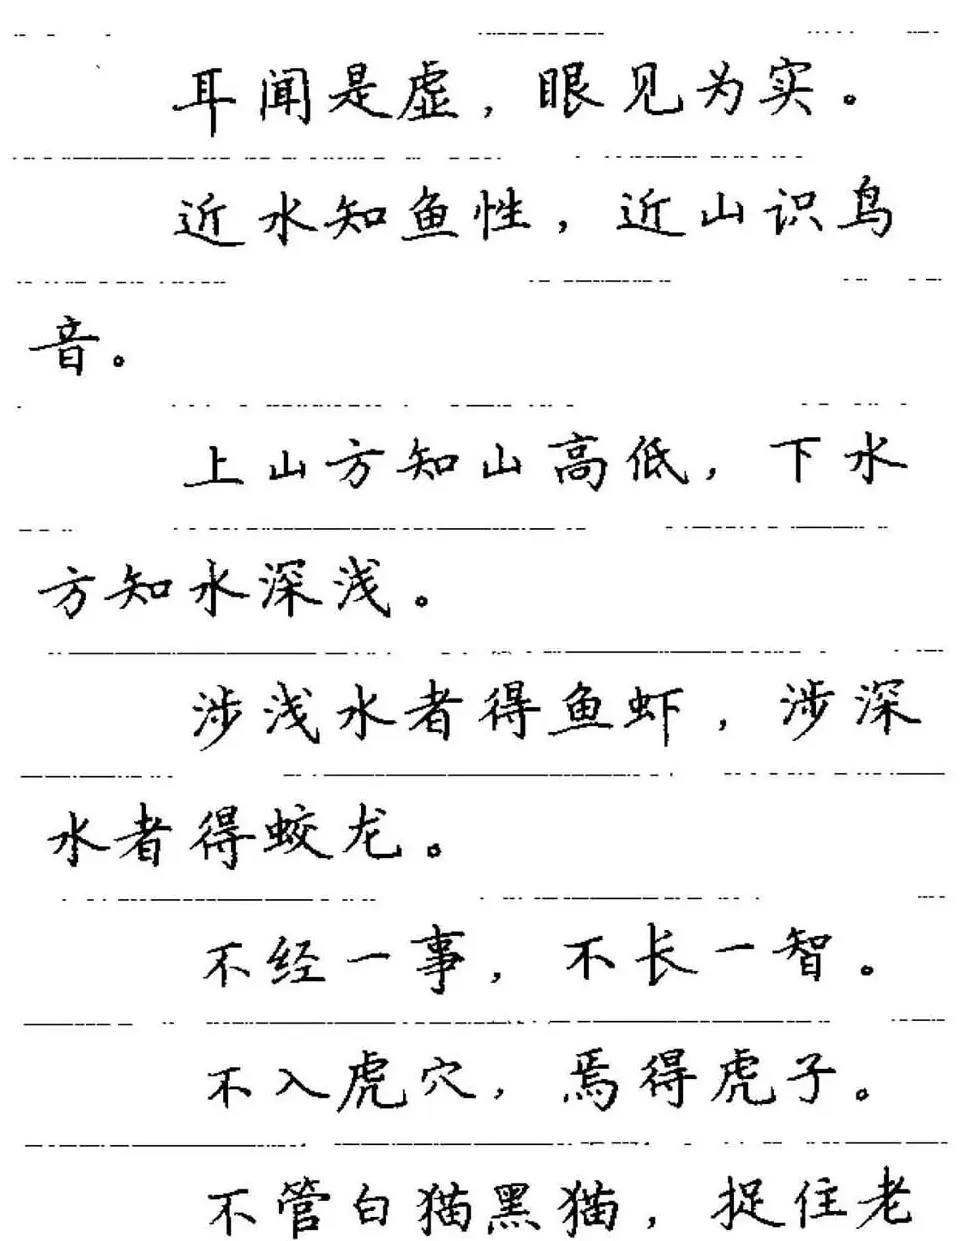 耳闻是虚，眼见为实。
近水知鱼性，近山识鸟
音。
上山方知山高低，下水
方知水深浅。
涉浅水者得鱼虾，涉深
水者得蛟龙。
不经一事，不长一智。
不入虎穴，焉得虎子。
不管白猫黑猫，捉住老